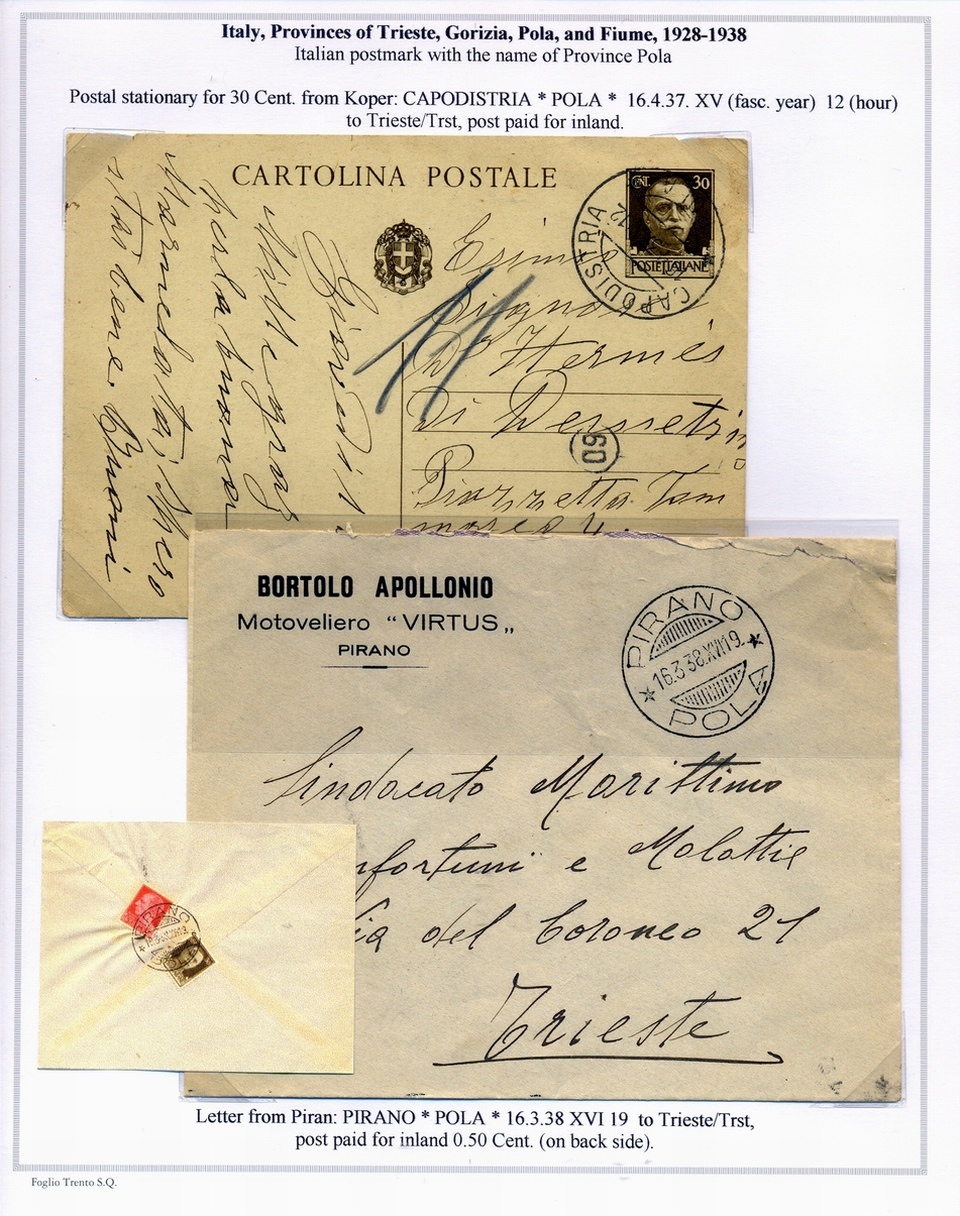 Italy, Provinces of Trieste, Gorizia, Pola, and Fiume, 1928-1938
Italian postmark with the name of Province Pola
Postal stationary for 30 Cent. from Koper: CAPODISTRIA * POLA * 16.4.37. XV (fasc. year) 12 (hour)
to Trieste/Trst, post paid for inland.
CARTOLINA POSTALE
CENT. 30
POSTE ITALIANE
CAPODISTRIA
Esimio
Signor
Hermes
di
Piazzetta Tom
maseo 4.
09
11
Mille graz
stai bene
BORTOLO APOLLONIO
Motoveliero "VIRTUS„
PIRANO
PIRANO
16.3.38.XVI 19.
POLA
Sindacato Marittimo
nfortuni e Malattie
ia del Coroneo 21
Trieste
PIRANO
POLA
Letter from Piran: PIRANO * POLA * 16.3.38 XVI 19 to Trieste/Trst,
post paid for inland 0.50 Cent. (on back side).
Foglio Trento S.Q.